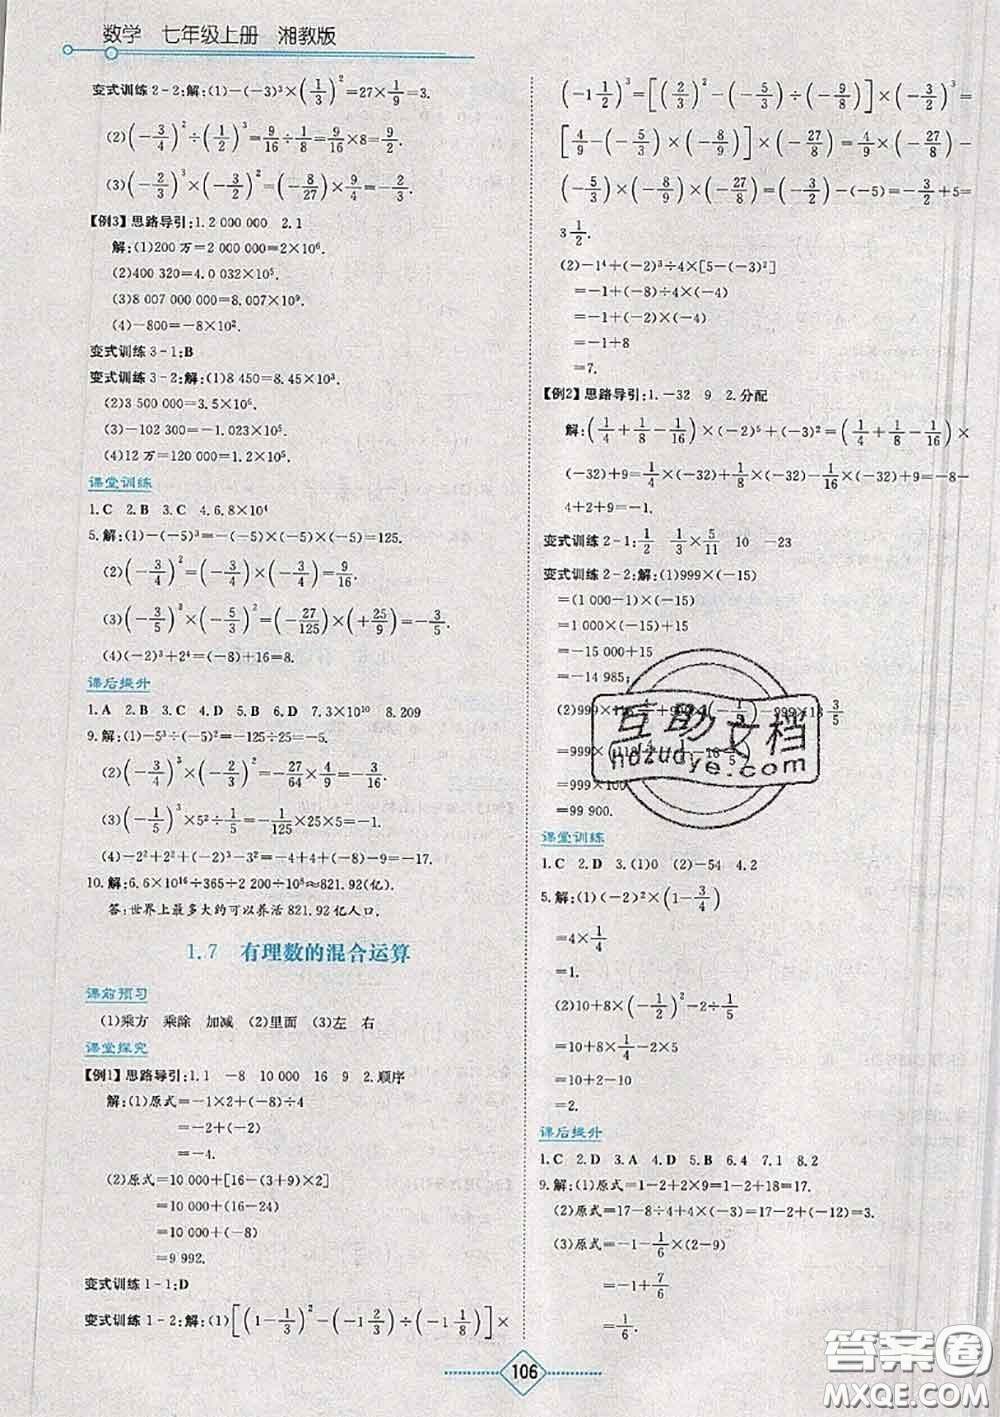 数学 七年级上册 湘教版
变式训练2-2:解:(1)-(-3)³×(1/3)²=27×1/9=3.
(2)(-3/4)²÷(1/2)³=9/16÷1/8=9/16×8=9/2.
(3)(-2/3)³×(-3/2)²=(-8/27)×9/4=-2/3.
【例3】思路导引:1.2 000 000 2.1
解:(1)200万=2 000 000=2×10⁶.
(2)403 200=4.0 032×10⁵.
(3)8 007 000 000=8.007×10⁹.
(4)-800=-8×10².
变式训练3-1:B
变式训练3-2:解:(1)8 450=8.45×10³.
(2)3 500 000=3.5×10⁶.
(3)-102 300=-1.023×10⁵.
(4)12万=120 000=1.2×10⁵.
课堂训练
1.C 2.B 3.C 4.6.8×10⁴
5.解:(1)-(-5)³=-(-5)×(-5)×(-5)=125.
(2)(-3/4)²=(-3/4)×(-3/4)=9/16.
(3)(-3/5)³×(-5/3)²=(-27/125)×(+25/9)=-3/5.
(4)(-2)³+2⁴=(-8)+16=8.
课后提升
1.A 2.B 3.C 4.D 5.B 6.D 7.3×10¹⁰ 8.209
9.解:(1)-5³÷(-5)²=-125÷25=-5.
(2)(-3/4)³×(-2/3)²=-27/64×4/9=-3/16.
(3)(-1/5)³×5²÷(-1/5)²=-1/125×25×25=-5.
(4)-2²+2²+(-2)³-3²=-4+4+(-8)-9=-17.
10.解:6.6×10¹⁶÷365÷2 200÷10⁸≈821.92(亿).
答:世界上最多大约可以养活821.92亿人口.
1.7 有理数的混合运算
课前预习
(1)乘方 乘除 加减 (2)里面 (3)左 右
课堂探究
【例1】思路导引:1.1 -8 10 000 16 9 2.顺序
解:(1)原式=-1×2+(-8)÷4
=-2+(-2)
=-4.
(2)原式=10 000+[16-(3+9)×2]
=10 000+(16-12×2)
=10 000+(-8)
=9 992.
变式训练1-1:D
变式训练1-2:解:(1)[(1-1/3)²-(-1 2/3)÷(-8/27)]×
(-1 1/2)³=[(2/3)²-(-5/3)÷(-8/27)]×(-3/2)³=
[4/9-(-5/3)×(-27/8)]×(-27/8)=4/9×(-27/8)-
(-5/3)×(-27/8)×(-27/8)=-3/2-(-5)=-3/2+5=
3 1/2.
(2)-1⁴+(-2)³÷4×[5-(-3)²]
=-1+(-8)÷4×(-4)
=-1+(-2)×(-4)
=-1+8
=7.
【例2】思路导引:1.-32 9 2.分配
解:(1/4+1/8-1/16)×(-2)⁵+(-3)²=(1/4+1/8-1/16)×
(-32)+9=1/4×(-32)+1/8×(-32)-1/16×(-32)+9=-8-
4+2+9=-1.
变式训练2-1:1/2 1/3×5/11 10 -23
变式训练2-2:解:(1)999×(-15)
=(1 000-1)×(-15)
=1 000×(-15)+15
=-15 000+15
=-14 985;
=99 900.
课堂训练
1.C 2.D 3.(1)0 (2)-54 4.2
5.解:(1)(-2)²×(1-3/4)
=4×1/4
=1.
(2)10+8×(-1/2)²-2÷1/5
=10+8×1/4-2×5
=10+2-10
=2.
课后提升
1.C 2.D 3.D 4.A 5.B 6.4 7.1 8.2
9.解:(1)原式=1-2+2×9=1-2+18=17.
(2)原式=17-8÷4+4×(-3)=17-2+(-12)=3.
(3)原式=-1-1/6×(2-9)
=-1+7/6
=1/6.
106
互助文档
hdzuoye.com
答案圈
MXQE.COM